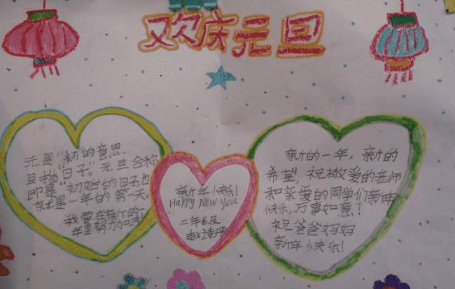 欢庆元旦
元是"初"的意思.
旦指"日子".元旦合称
即是"初始的日子"也
就是一年的第一天。
我要在新的一
年里努力
新年快乐!
Happy New year
二年七班
新的一年,新的
希望,祝敬爱的老师
和亲爱的同学们新年
快乐,万事如意!
祝爸爸妈妈
新年快乐!